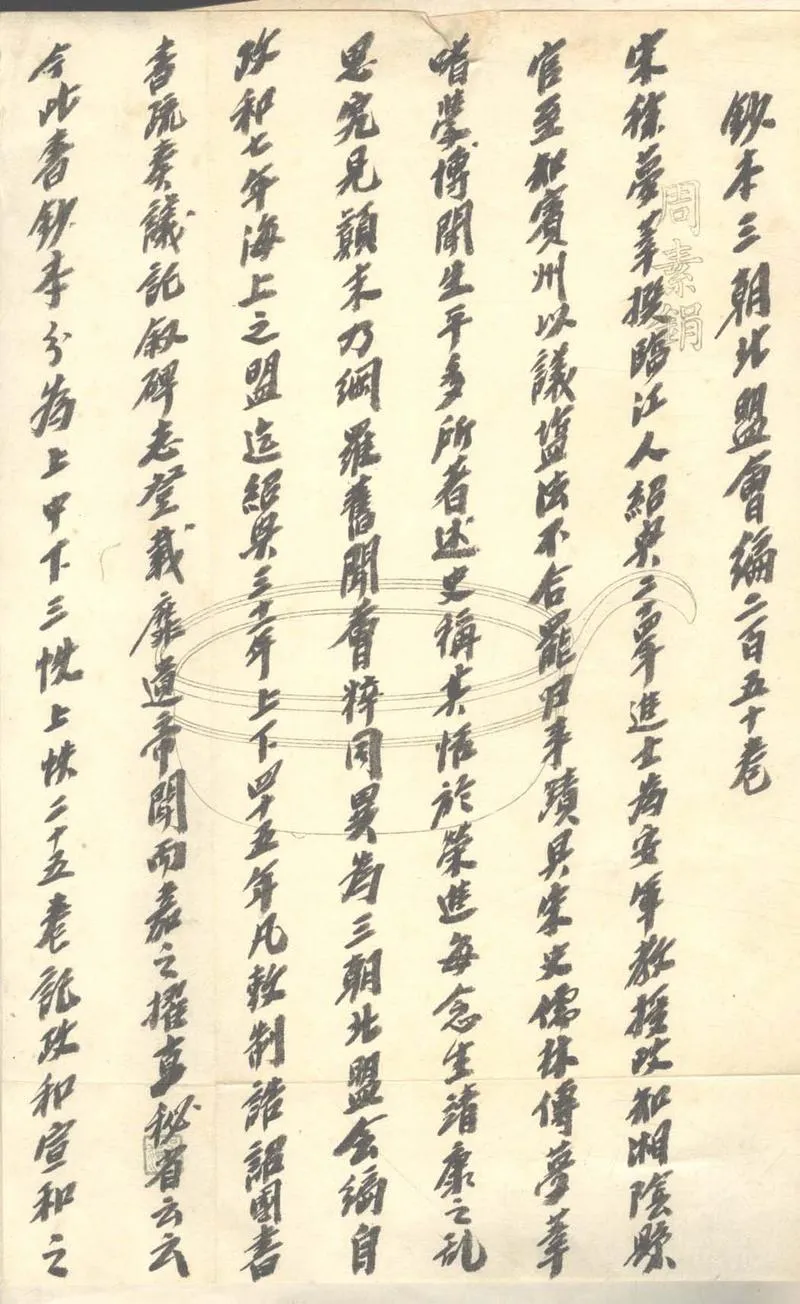 鈔本三朝北盟會編二百五十卷
宋徐夢莘撰臨江人紹興二十四年進士為安軍教授改知湘陰縣
官至知賓州以議鹽法不合罷归事蹟具宋史儒林傳夢莘
嗜學博聞生平多所著述史稱其恬於榮進每念生靖康之乱
思究見顛末乃綱羅舊聞薈粹同異為三朝北盟会編自
政和七年海上之盟迄紹興三十一年上下四十五年凡敕制誥詔國書
書疏奏議記叙碑志登載靡遺帝聞而嘉之擢直秘省云云
今此書鈔本分為上中下三帙上帙二十五卷記政和宣和之
周素娟